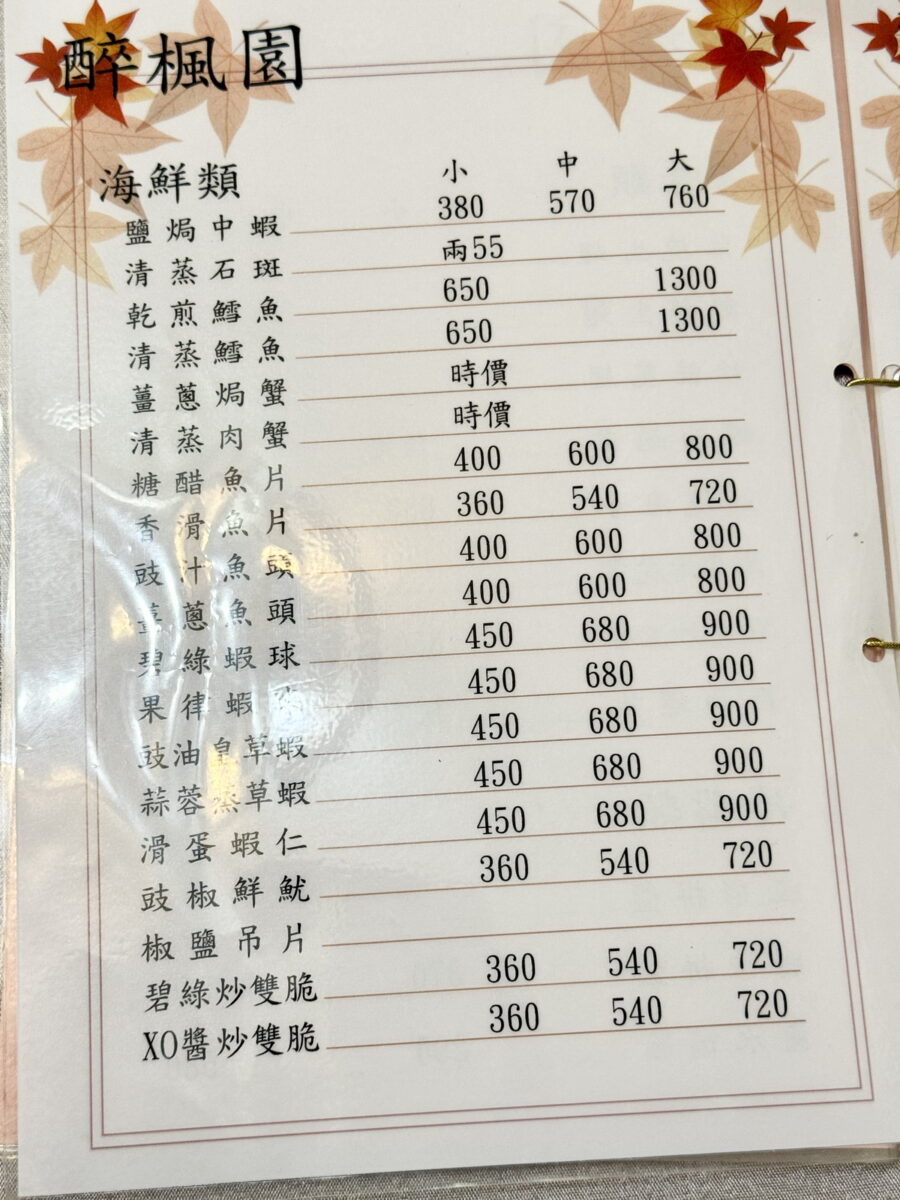 醉楓園
海鮮類 小 中 大
鹽焗中蝦 380 570 760
清蒸石斑 兩55
乾煎鱈魚 650 1300
清蒸鱈魚 650 1300
薑蔥焗蟹 時價
清蒸肉蟹 時價
糖醋魚片 400 600 800
香滑魚片 360 540 720
豉汁魚頭 400 600 800
薑蔥魚頭 400 600 800
碧綠蝦球 450 680 900
果律蝦球 450 680 900
豉油皇草蝦 450 680 900
蒜蓉蒸草蝦 450 680 900
滑蛋蝦仁 450 680 900
豉椒鮮魷 360 540 720
椒鹽吊片
碧綠炒雙脆 360 540 720
XO醬炒雙脆 360 540 720